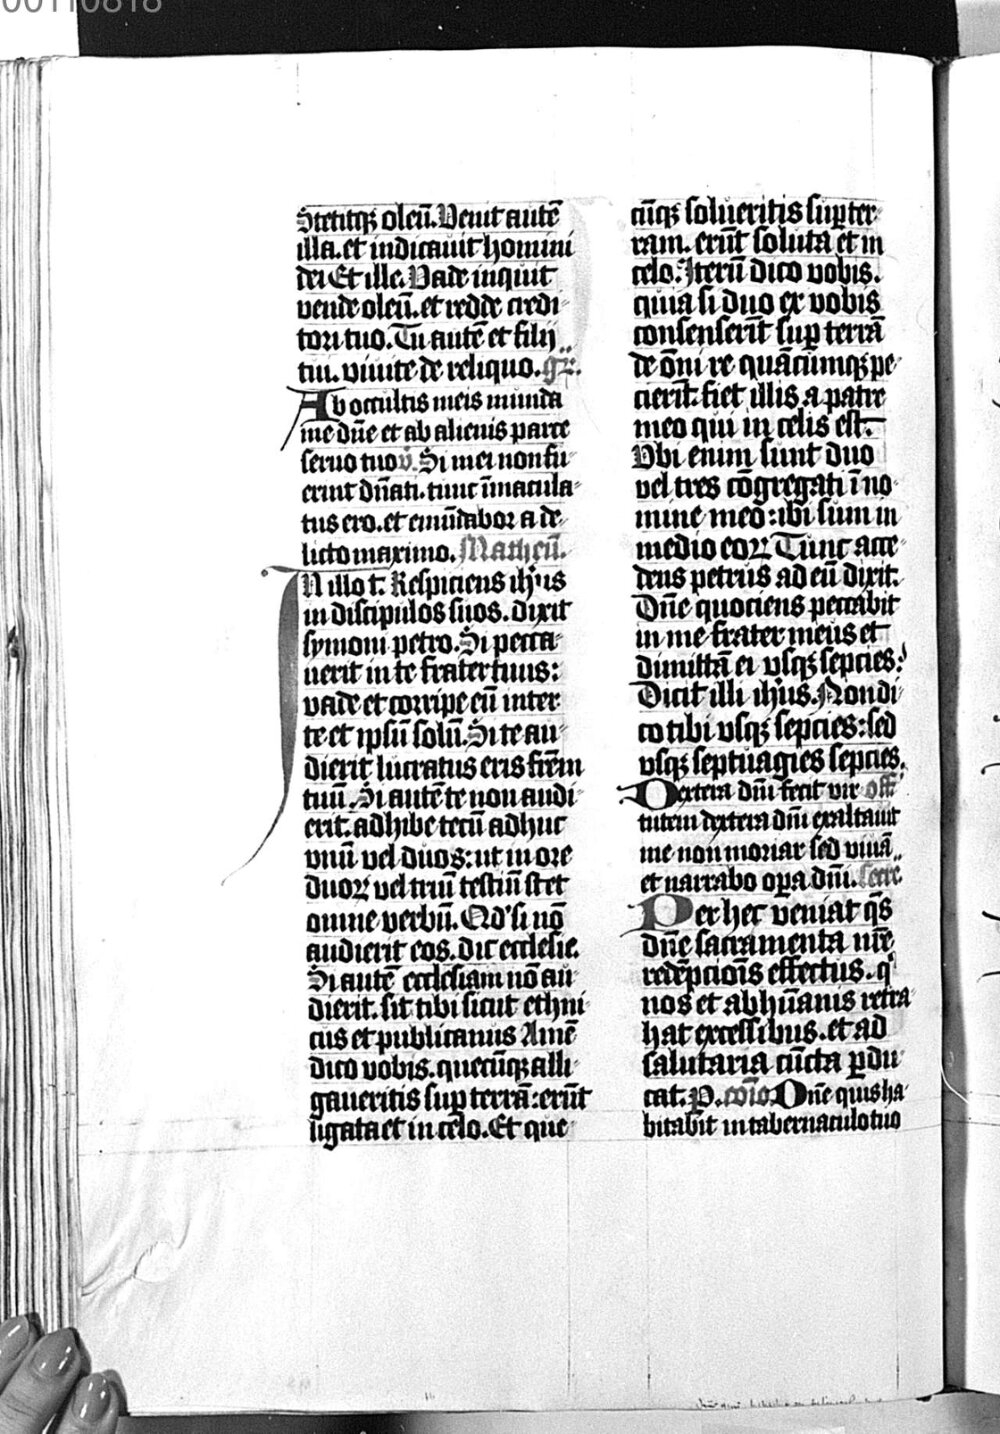 00110818
Stetitqꝫ oleū. Venit autē
illa. et indicauit homini
dei Et ille. Vade inquit
vende oleū. et redde credi-
tori tuo. Tu autē et filij
tui. viuite de reliquo. gͬ.
Ab occultis meis munda
me dn̄e et ab alienis parce
seruo tuo v̄. Si mei non fu-
erint dn̄ati. tunc īmacula-
tus ero. et emūdabor a de-
licto maximo. Matheū.
In illo t. Respiciens ih̄us
in discipulos suos. dixit
symoni petro. Si pecca-
uerit in te frater tuus:
vade et corripe eū inter
te et ipsū solū. Si te au-
dierit lucratus eris frēm
tuū. Si autē te non audi-
erit. adhibe tecū adhuc
vnū vel duos: ut in ore
duoꝝ vel triū testiū stet
omne verbū. Qd' si nō
audierit eos. dic ecclesie.
Si autē ecclesiam nō au-
dierit. sit tibi sicut ethni-
cus et publicanus Amē
dico vobis. quecūqꝫ alli-
gaueritis sup terrā: erūt
ligata et in celo. Et que-
cūqꝫ solueritis sup ter-
ram. erūt soluta et in
celo. Iterū dico vobis.
quia si duo ex vobis
consenserīt sup terrā
de ōni re quācumqꝫ pe-
cierīt. fiet illis a patre
meo qui in celis est.
Vbi enim sunt duo
vel tres cōgregati ī no-
mine meo: ibi sum in
medio eoꝝ Tunc acce-
dens petrus ad eū dixit.
Dn̄e quociens peccabit
in me frater meus et
dimittā ei vsqꝫ sepcies.
Dicit illi ih̄us. Non di-
co tibi vsqꝫ sepcies: sed
vsqꝫ septuagies sepcies.
Dextera dn̄i fecit vir off.
tutem dextera dn̄i exaltauit
me non moriar sed viuā
et narrabo oꝑa dn̄i. secre.
Per hec veniat q̄s
dn̄e sacramenta nr̄e
redēpcioīs effectus. q'
nos et ab hūanis retra-
hat excessibus. et ad
salutaria cūcta ꝑdu-
cat. P. cōio. Dn̄e quis ha-
bitabit in tabernaculo tuo